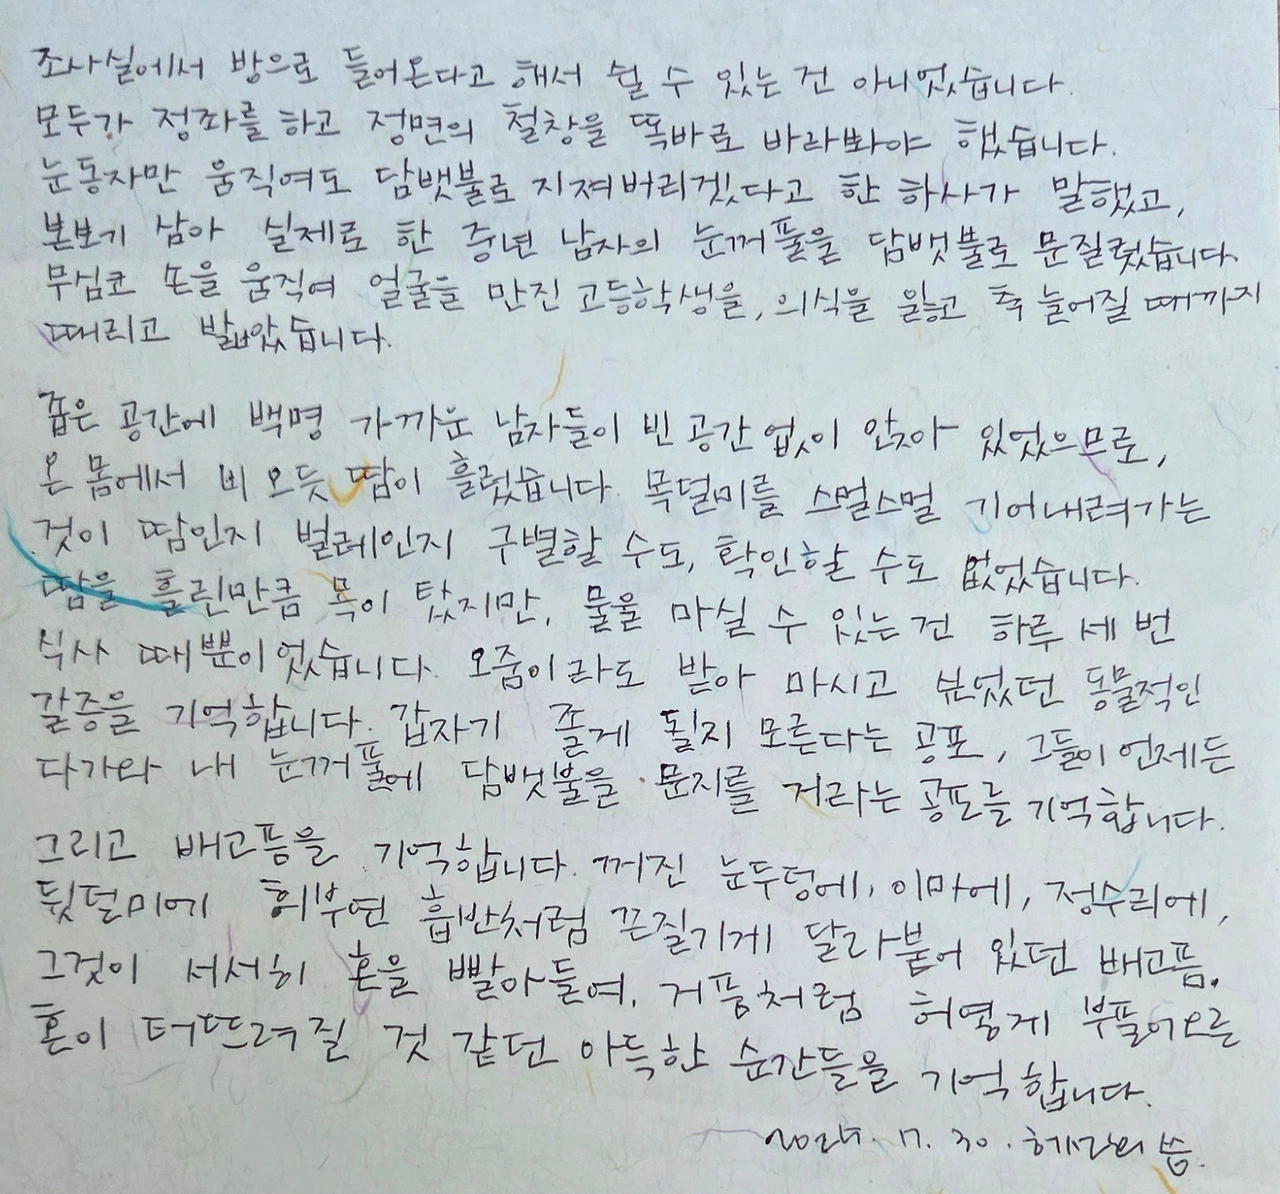 조사실에서 방으로 들어온다고 해서 쉴 수 있는 건 아니었습니다.
모두가 정좌를 하고 정면의 철창을 똑바로 바라봐야 했습니다.
눈동자만 움직여도 담뱃불로 지져버리겠다고 한 하사가 말했고,
본보기 삼아 실제로 한 중년 남자의 눈꺼풀을 담뱃불로 문질렀습니다.
무심코 손을 움직여 얼굴을 만진 고등학생을, 의식을 잃고 축 늘어질 때까지
때리고 밟았습니다.
좁은 공간에 백명 가까운 남자들이 빈 공간 없이 앉아 있었으므로,
온 몸에서 비 오듯 땀이 흘렀습니다. 목덜미를 스멀스멀 기어내려가는
것이 땀인지 벌레인지 구별할 수도, 확인할 수도 없었습니다.
땀을 흘린만큼 목이 탔지만, 물을 마실 수 있는 건 하루 세 번
식사 때뿐이었습니다. 오줌이라도 받아 마시고 싶었던 동물적인
갈증을 기억합니다. 갑자기 졸게 될지 모른다는 공포, 그들이 언제든
다가와 내 눈꺼풀에 담뱃불을 문지를 거라는 공포를 기억합니다.
그리고 배고픔을 기억합니다. 꺼진 눈두덩에, 이마에, 정수리에,
뒷덜미에 희부연 흡반처럼 끈질기게 달라붙어 있던 배고픔.
그것이 서서히 혼을 빨아들여, 거품처럼 허옇게 부풀어오른
혼이 터뜨려질 것 같던 아득한 순간들을 기억합니다.
7. 30. 씀.